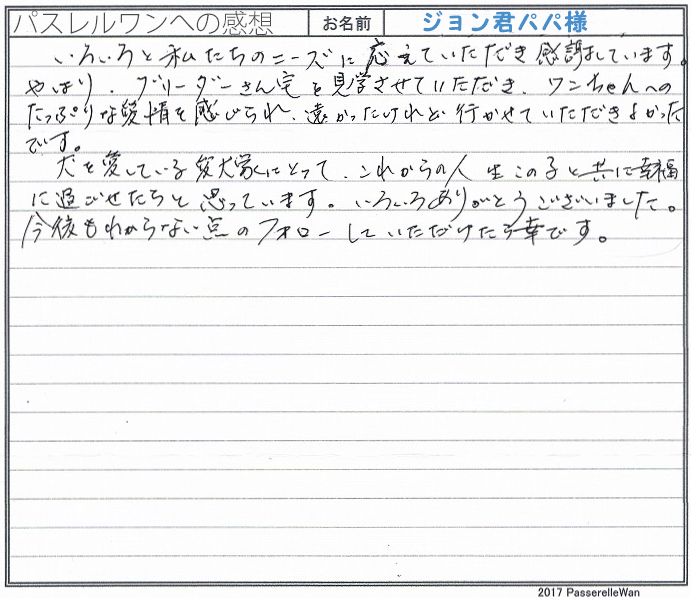 パスレルワンへの感想 お名前 ジョン君パパ様
いろいろと私たちのニーズに応えていただき感謝しています。
やはり、ブリーダーさん宅を見学させていただき、ワンちゃんへの
たっぷりな愛情を感じられ、遠かったけれど行かせていただきよかった
です。
犬を愛している愛犬家にとって、これからの人生この子と共に幸福
に過ごせたらと思っています。いろいろありがとうございました。
今後もわからない点のフォローしていただけたら幸です。
2017 PasserelleWan